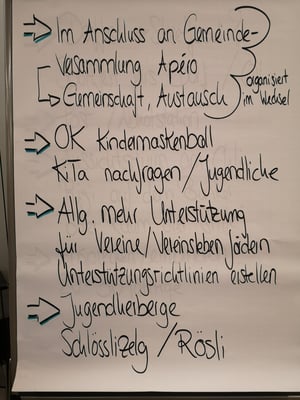 Im Anschluss an Gemeinde-
versammlung Apéro
Gemeinschaft, Austausch
organisiert
im Wechsel
OK Kindermaskenball
KiTa nachfragen/Jugendliche
Allg. mehr Unterstützung
für Vereine/Vereinsleben fördern
Unterstützungsrichtlinien erstellen
Jugendherberge
Schlösslizelg/Rösli